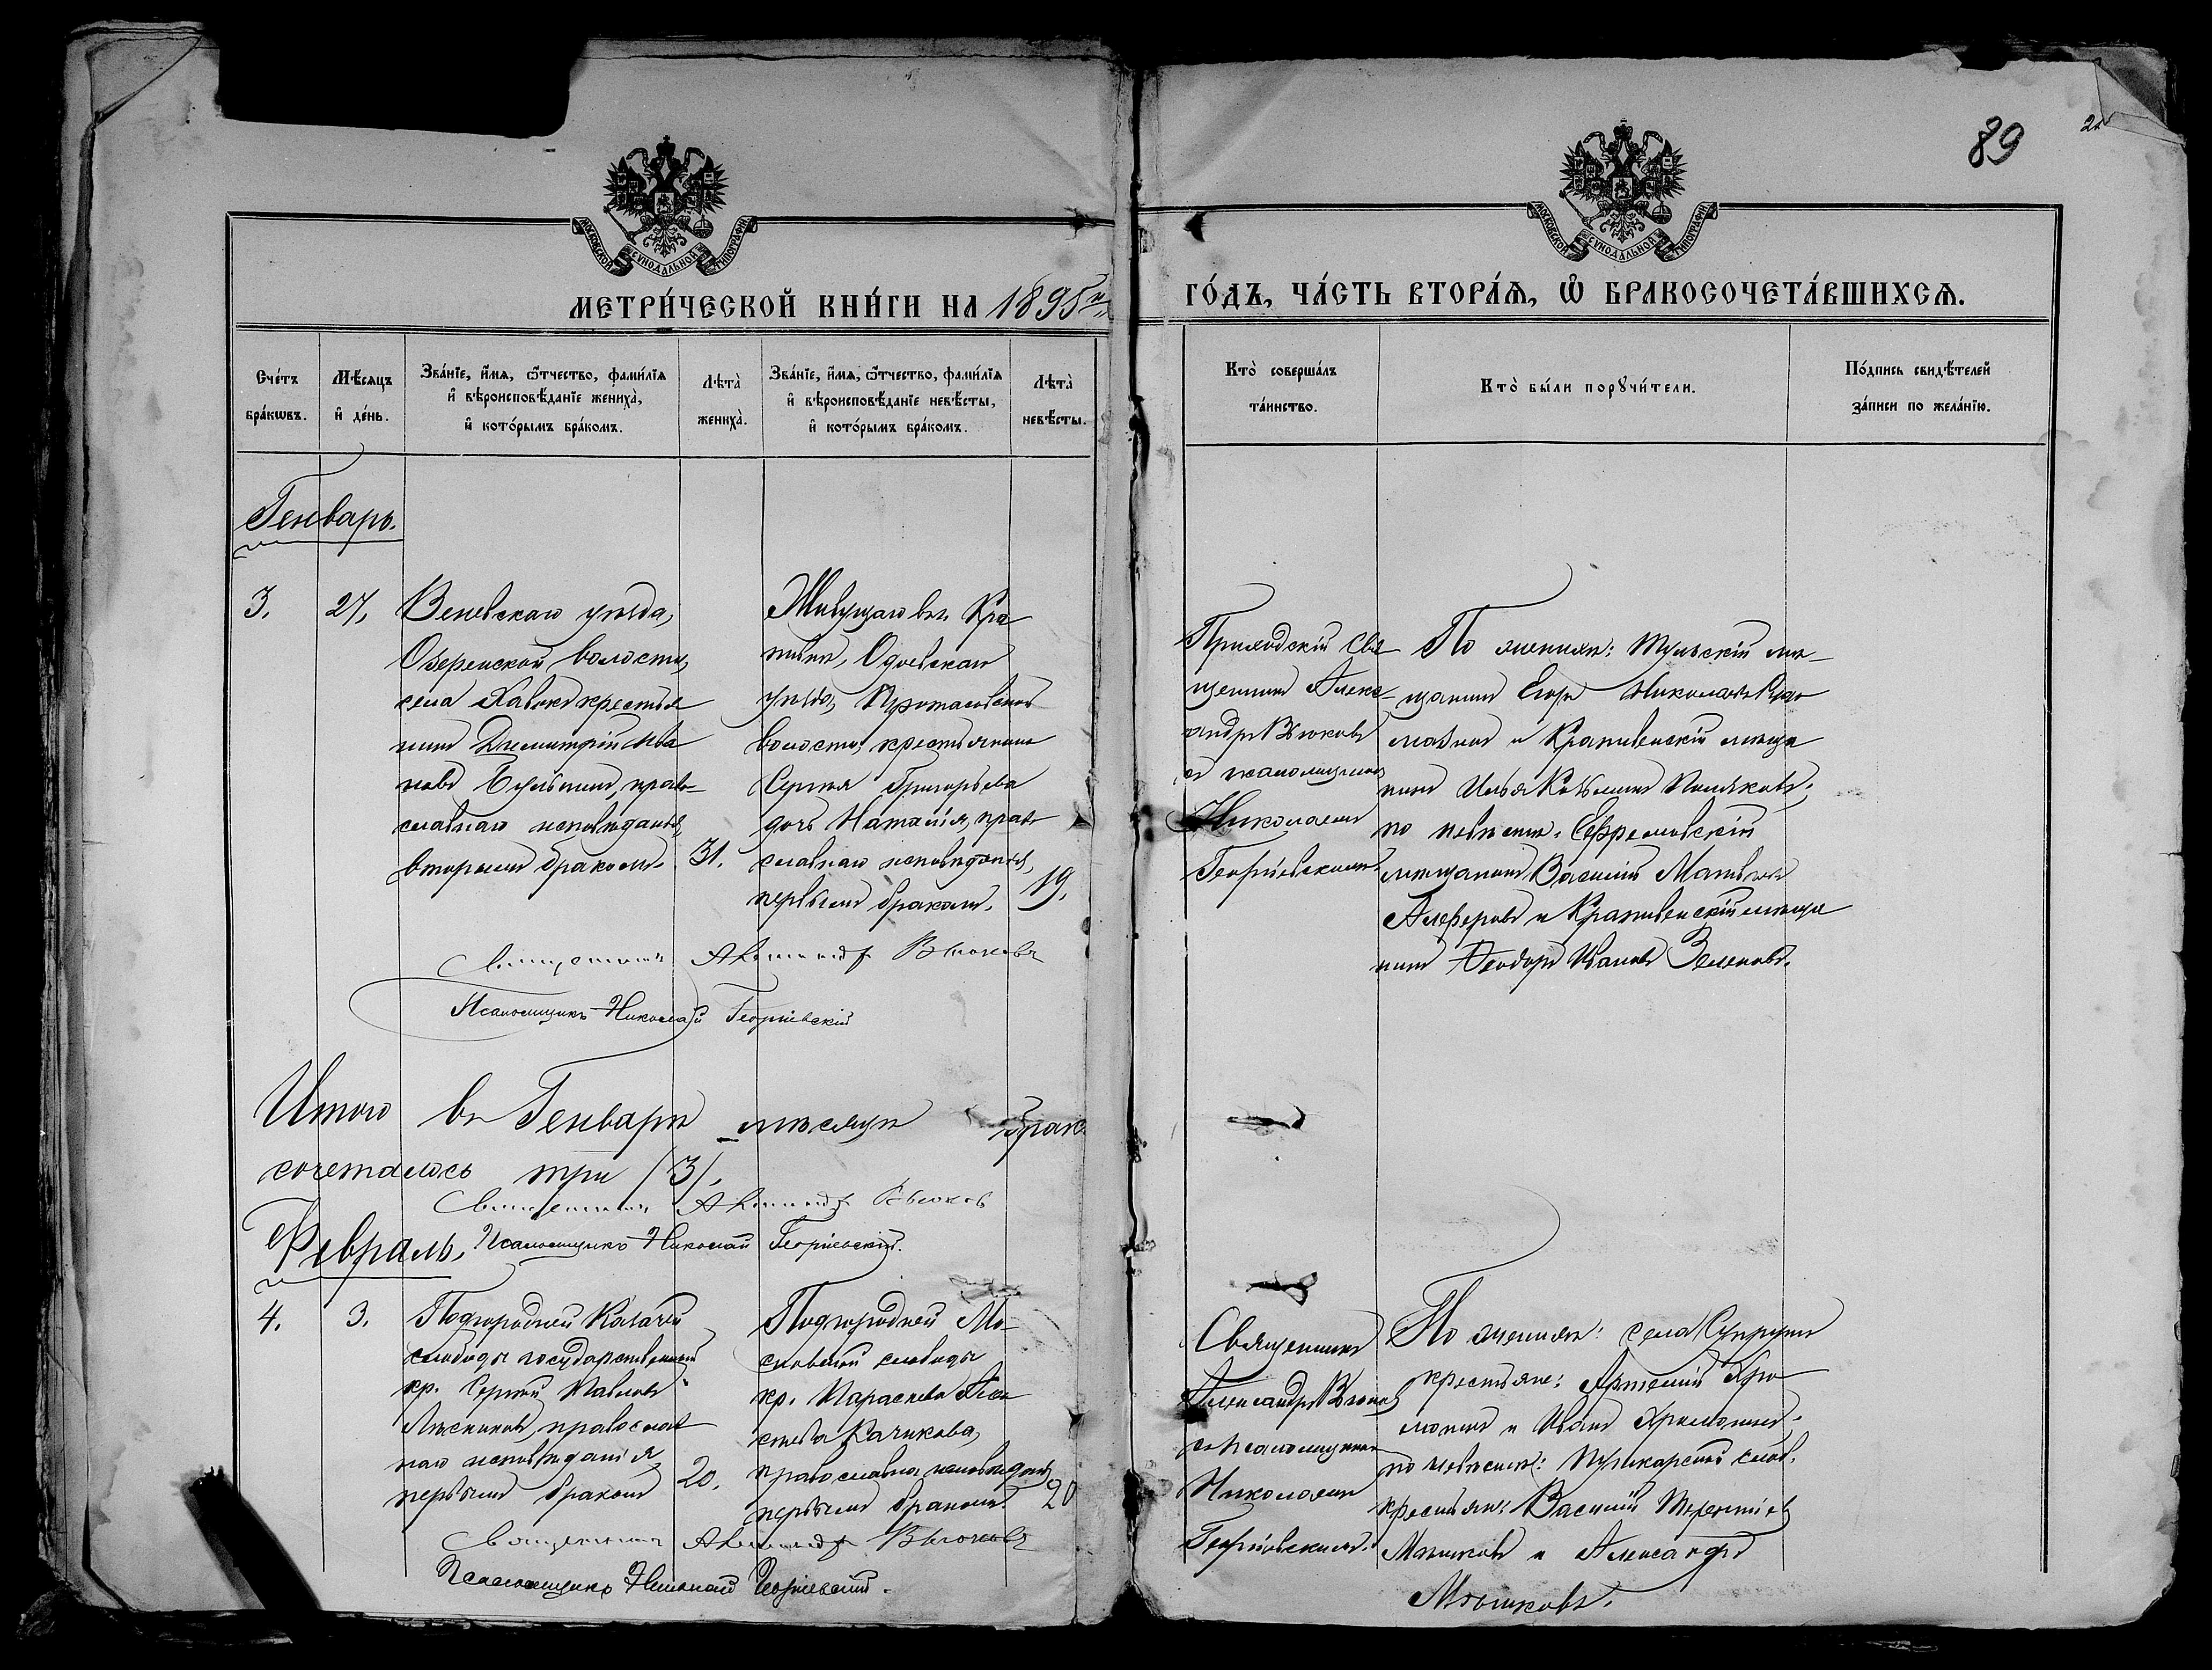 89
МОСКОВСКОЙ СУНОДАЛЬНОЙ ТИПОГРАФІИ
МОСКОВСКОЙ СУНОДАЛЬНОЙ ТИПОГРАФІИ
МЕТРИ́ЧЕСКОЙ КНИ́ГИ НА 1895й
ГО́ДЪ, ЧА́СТЬ ВТОРА́Я, Ѽ БРАКОСОЧЕТА́ВШИХСЯ.
Сче́тъ бра́кѡвъ.
Мѣ́сяцъ и҆ де́нь.
Зва́нїе, и҆́мѧ, ѻ҆́тчество, фами́лїѧ
и҆ вѣроисповѣ́данїе жениха̀,
и҆ кото́рымъ бра́комъ.
Лѣта̀ жениха̀.
Зва́нїе, и҆́мѧ, ѻ҆́тчество, фами́лїѧ
и҆ вѣроисповѣ́данїе невѣ́сты,
и҆ кото́рымъ бра́комъ.
Лѣта̀ невѣ́сты.
Кто̀ соверша́лъ
та́инство.
Кто̀ бы́ли порꙋчи́тели.
По́дпись свидѣ́телей
за́писи по жела́нїю.
Генварь.
3.
27,
Веневскаго уѣзда,
Озеренской волости,
села Хавокъ крестья
нинъ Димитрій Ива
новъ, право
славнаго исповѣданія,
вторымъ бракомъ.
31.
Живущаго въ г. Кра
пивнѣ, Одоевскаго
уѣзда, Протасовской
волости, крестьянина
Сергѣя Григорьева
дочь Наталія, право
славнаго исповѣданія,
первымъ бракомъ.
19.
Приходскій Свя
щенникъ Алекс
андръ Вьюковъ
съ псаломщикомъ
Николаемъ
Георгіевскимъ.
По женихѣ: Тульскій мѣ
щанинъ Егоръ Николаевъ
и Крапивенскій мѣща
нинъ Илья Козьминъ Поляковъ;
по невѣстѣ: Ефремовскій
мѣщанинъ Василій Матвѣевъ
Алферовъ и Крапивенскій мѣща
нинъ Ѳеодоръ Ивановъ Зеленовъ.
Священникъ Александръ Вьюковъ
Псаломщикъ Николай Георгіевскій
Итого въ Генварѣ мѣсяцѣ брако
сочеталось три /3/.
Священникъ Александръ Вьюковъ
Псаломщикъ Николай Георгіевскій.
Февраль.
4.
3.
Подгородней Казачей
слободы государственный
кр. Сергѣй Павловъ
Лѣсниковъ, православ
наго исповѣданія
первымъ бракомъ
20.
Подгородней Мо
сковской слободы
кр. Параскева Алек
сѣева Качикова,
православнаго исповѣданія,
первымъ бракомъ.
20
Священникъ
Александръ Вьюковъ
съ псаломщикомъ
Николаемъ
Георгіевскимъ.
По женихѣ: села Супрутъ
крестьяне: Артемій Хро
мокинъ и Иванъ
по невѣстѣ: Пушкарской слоб.
крестьяне: Василій Терентіевъ
Мѣшковъ и Александръ
Мѣшковъ.
Священникъ Александръ Вьюковъ
Псаломщикъ Николай Георгіевскій.